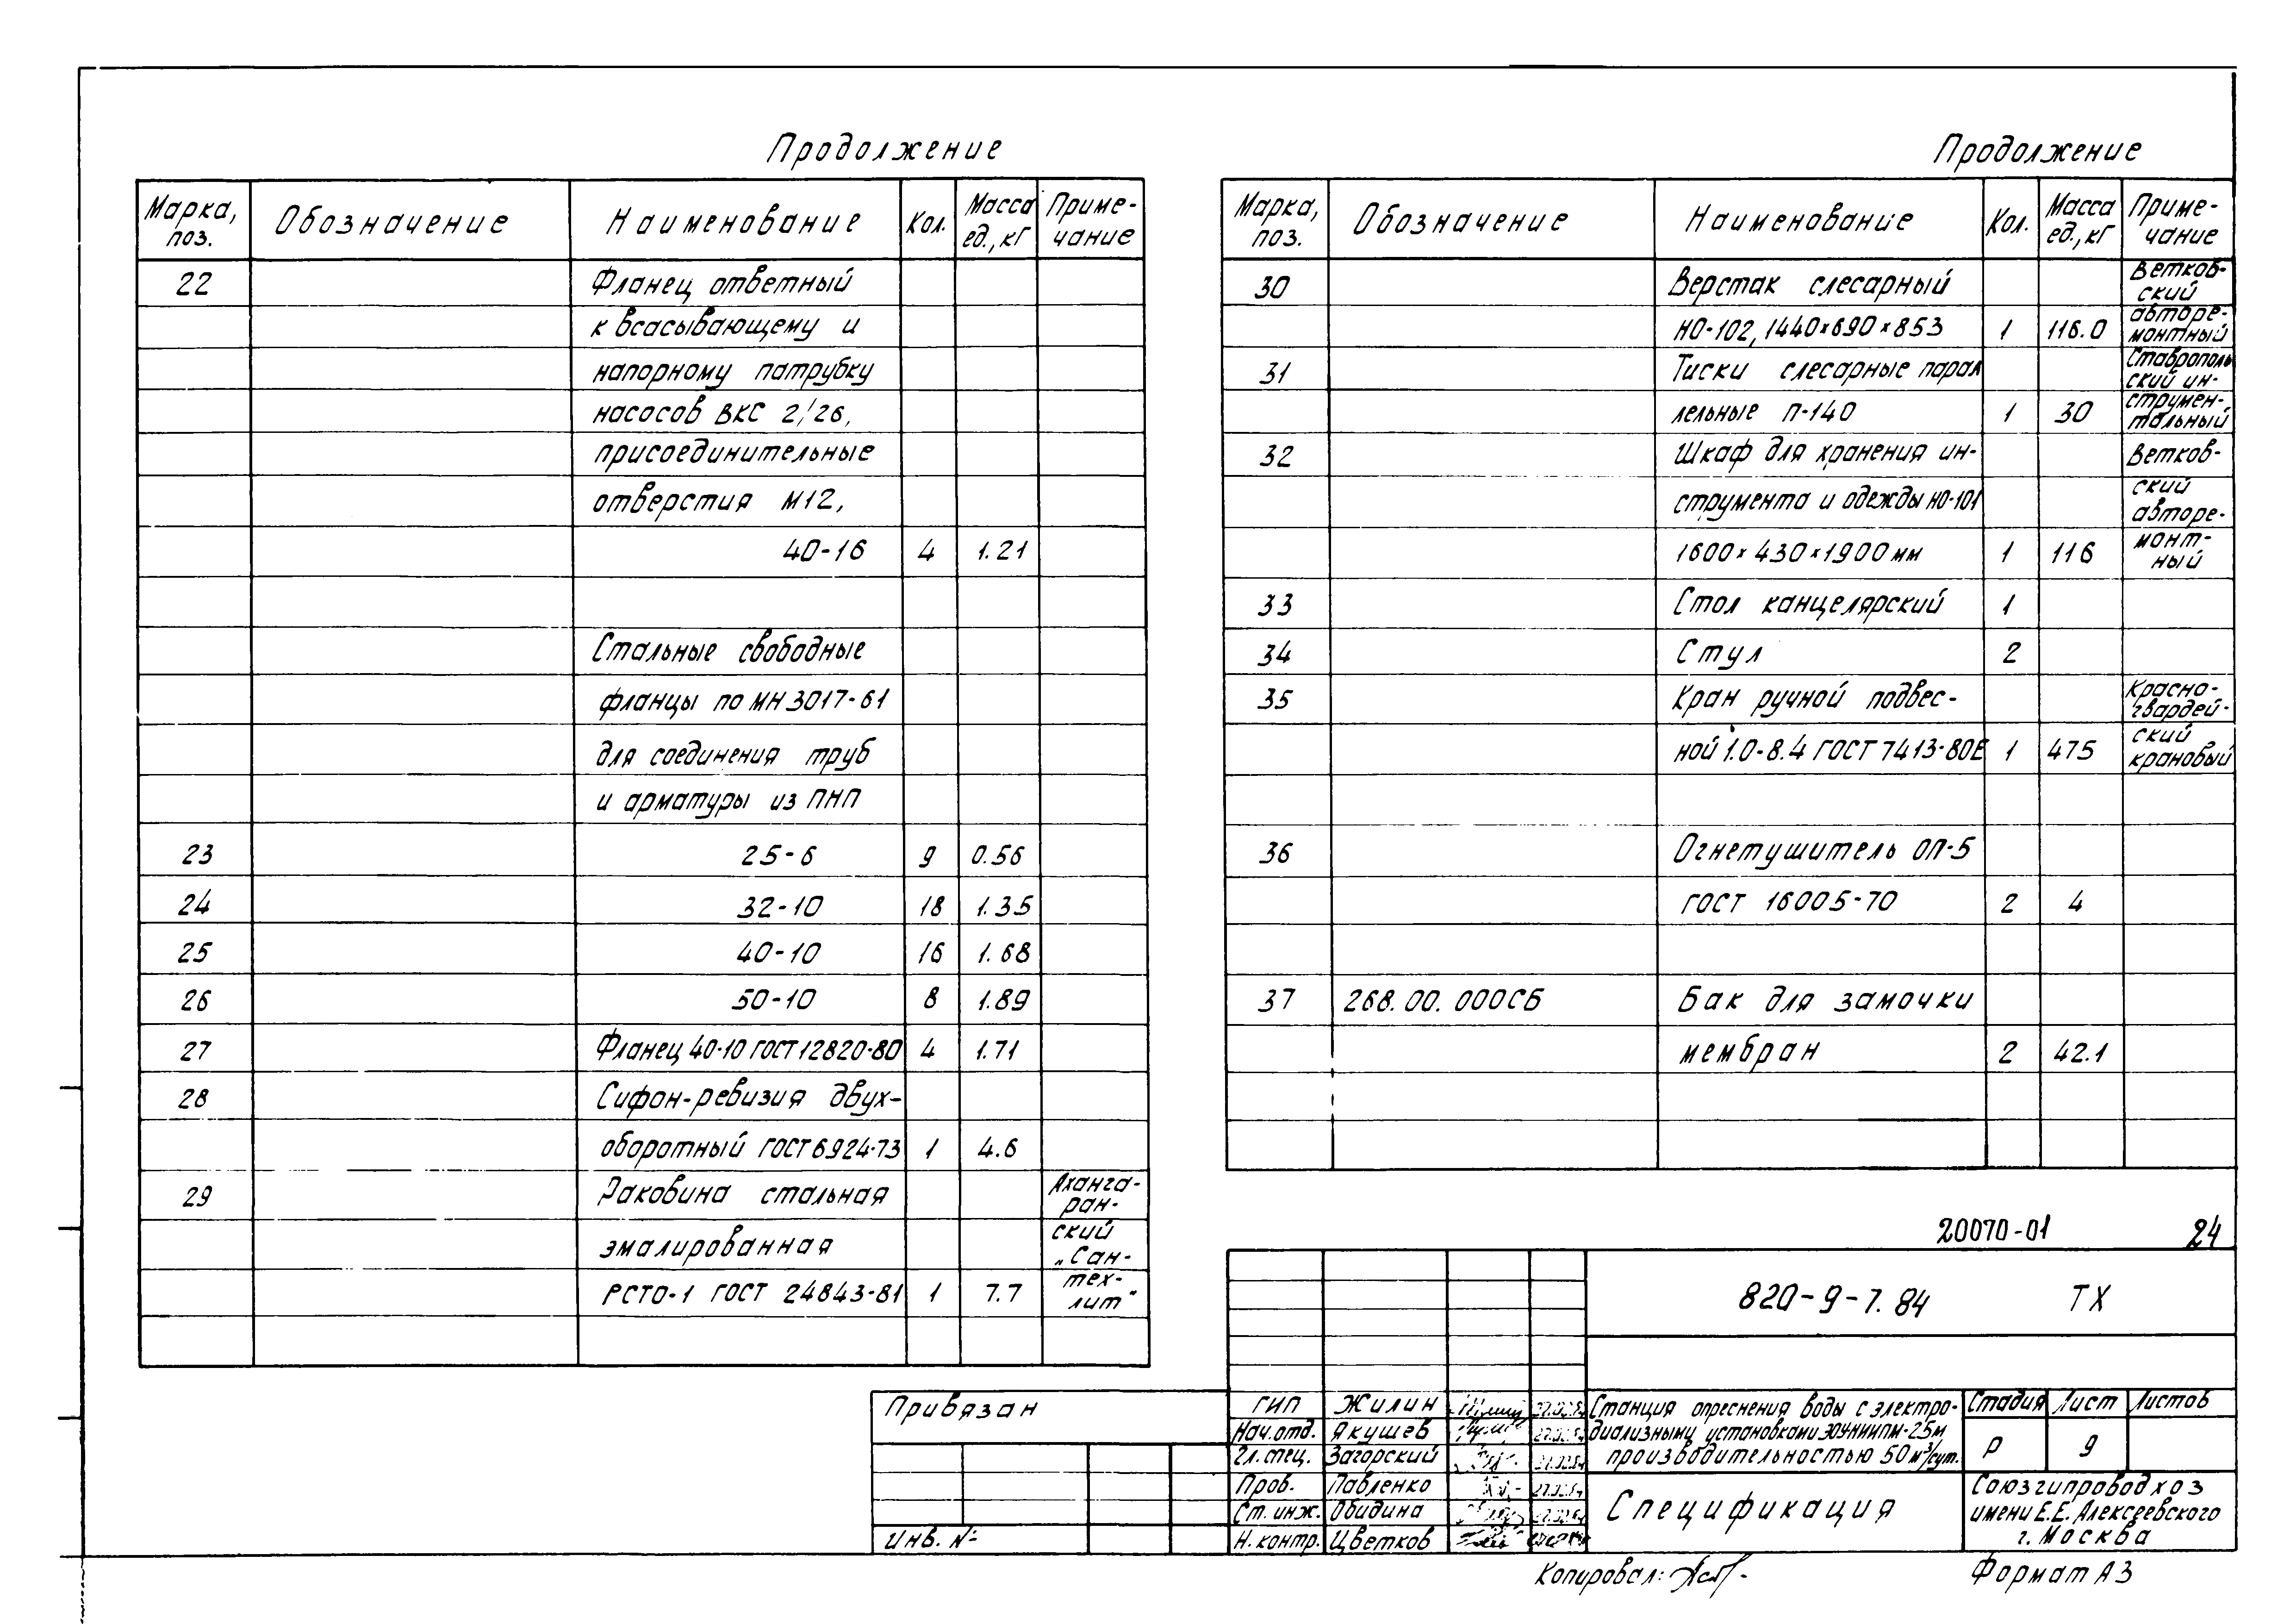 Продолжение
Марка, поз. Обозначение Наименование Кол. Масса ед., кг Приме-чание
22 Фланец ответный
к всасывающему и
напорному патрубку
насосов ВКС 2/26,
присоединительные
отверстия М12,
40-16 4 1.21
Стальные свободные
фланцы по МН 3017-61
для соединения труб
и арматуры из ПНП
23 25-6 9 0.56
24 32-10 18 1.35
25 40-10 16 1.68
26 50-10 8 1.89
27 Фланец 40-10 ГОСТ 12820-80 4 1.71
28 Сифон-ревизия двух-
оборотный ГОСТ 6924-73 1 4.6
29 Раковина стальная Ахангa-
ран-
эмалированная ский
„Сан-
РСТО-1 ГОСТ 24843-81 1 7.7 тех-
лит"
Продолжение
Марка, поз. Обозначение Наименование Кол. Масса ед., кг Приме-чание
30 Верстак слесарный Ветков-
ский
НО-102, 1440×690×853 1 116.0 авторе-
монтный
31 Тиски слесарные парал Ставрополь
ский ин-
лельные П-140 1 30 струмен-
тальный
32 Шкаф для хранения ин- Ветков-
струмента и одежды НО-101 ский
авторе-
1600×430×1900 мм 1 116 монт-
ный
33 Стол канцелярский 1
34 Стул 2
35 Кран ручной подвес- Красно-
гвардей-
ной 1.0-8.4 ГОСТ 7413-80Е 1 475 ский
крановый
36 Огнетушитель ОП-5
ГОСТ 16005-70 2 4
37 268.00.000СБ Бак для замочки
мембран 2 42.1
20070-01 24
820-9-7.84 ТХ
Привязан
Инв. №
ГИП Жилин
Нач.отд. Якушев
Гл.спец. Загорский
Пров. Павленко
Ст.инж. Обидина
Н.контр. Цветков
Станция опреснения воды с электро-
диализными установками ЭОУНИИПМ-25м
производительностью 50 м³/сут.
Стадия Лист Листов
Р 9
Спецификация
Союзгипроводхоз
имени Е.Е. Алексеевского
г. Москва
Копировал:
Формат А3